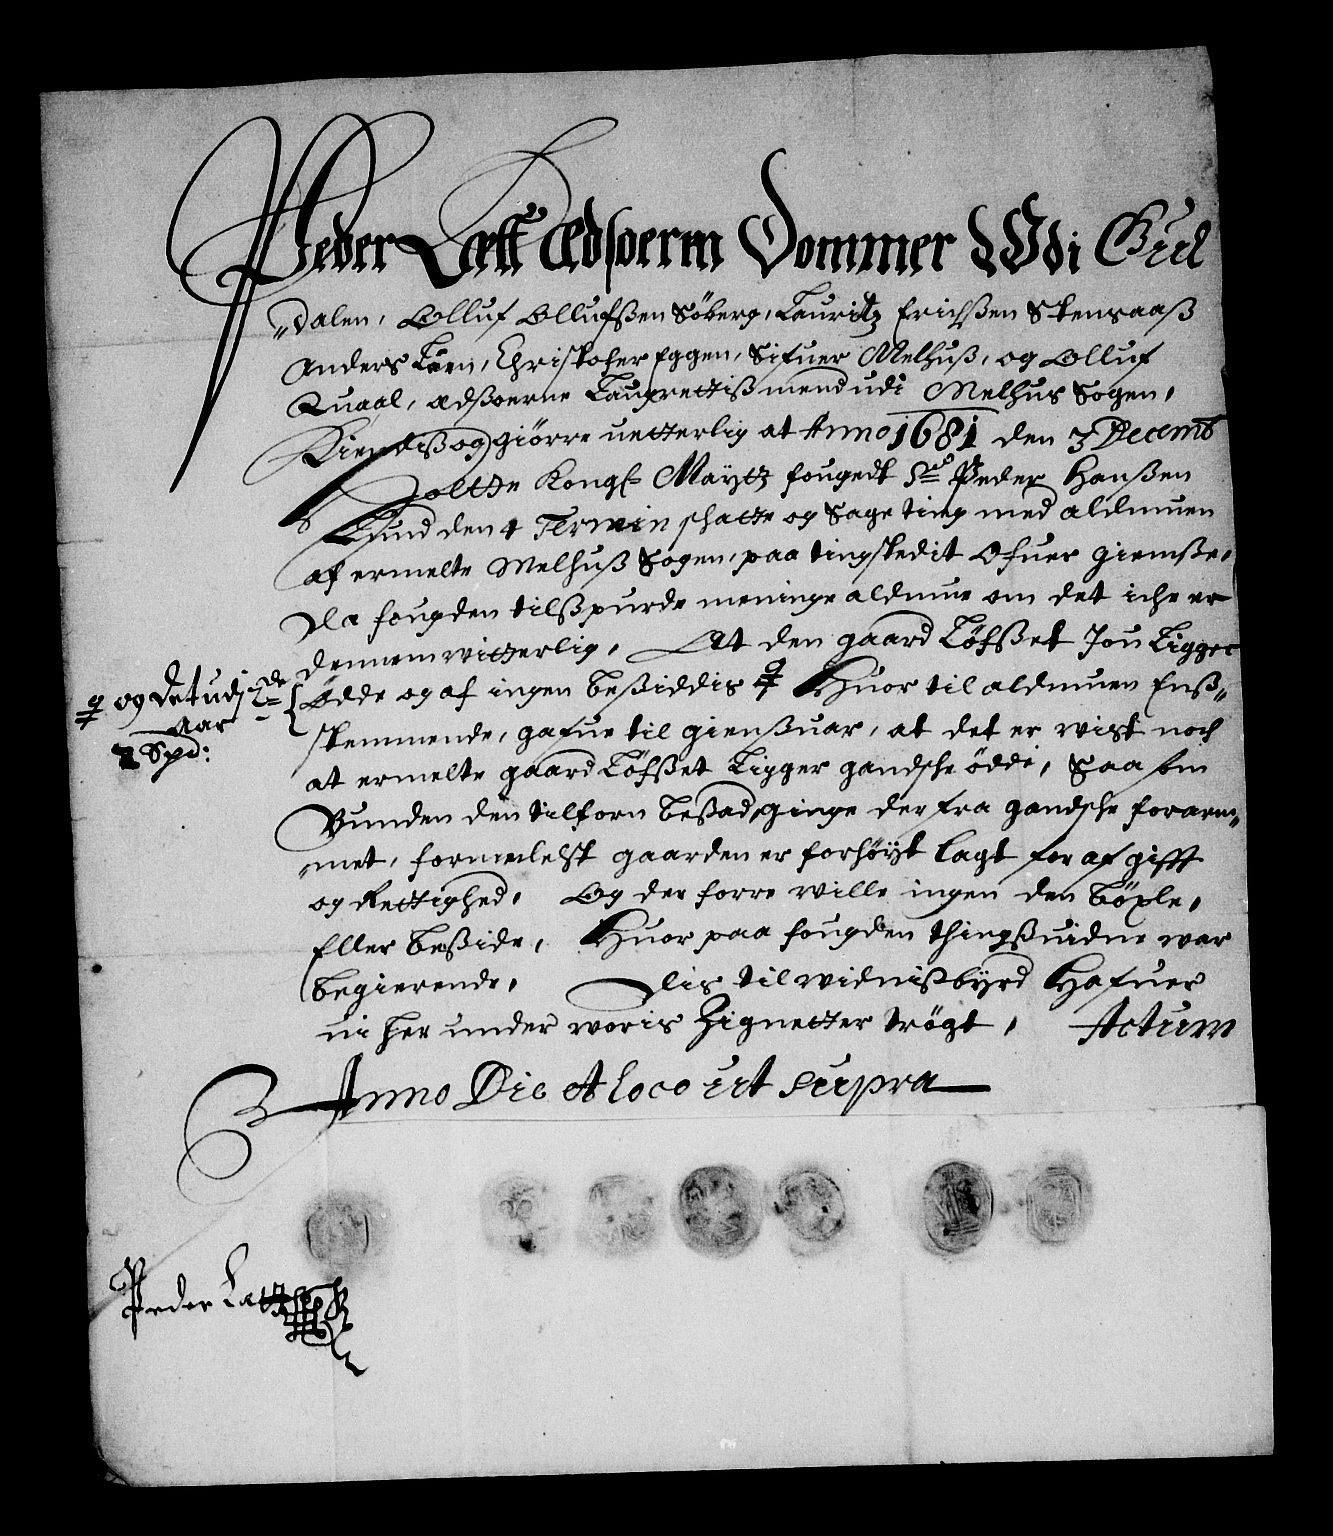 Peder Lætt Ædsoern Dommer Udi Gul
dalen, Olluf Ollufsßen Söberg, Lauritz Erichsßen Stensaaß
Anders Löen, Christofer Eggen, Sifuer Melhuß, og Olluf
Quaal, edsßoerne Laugrettißmend udi Melhus Sogen,
Kiendiß og giörre uetterlig at Anno 1681 den 3 Decemb
holtte Kongl Maytz fougedt Sr Peder Hansßen
Lund den 4 Termin schatte og Sage ting med aldmuen
af ermelte Melhuß Sogen, paa tingstedit Ofuer giemsße,
Da fougden tilsßpurde meninge aldmue om det iche er
dennem witterlig, At den gaard Löfsßet Jou Ligger
q og det udj 2de
Aar
2 Spd:
Ödde og af ingen beßiddis q Huor til aldmuen Enß
stemmende, gafue til giensßuar, at det er wist noch
at ermelte gaard Löfsßet Ligger gandsche öddi, Saa som
Bunden den tilforn beßad, ginge der fra gandsche forarm
met, formedelst gaarden er forhöyt lagt for af gifft
og Rettighed, Og der forre wille ingen den böxle,
Eller beßide, Huor paa fougden thingßuidne war
begierende, Dis til widnißbyrd Hafuer
ui her under woris Zignetter trögt, Actum
Anno Die et loco ut supra
Peder Lætt